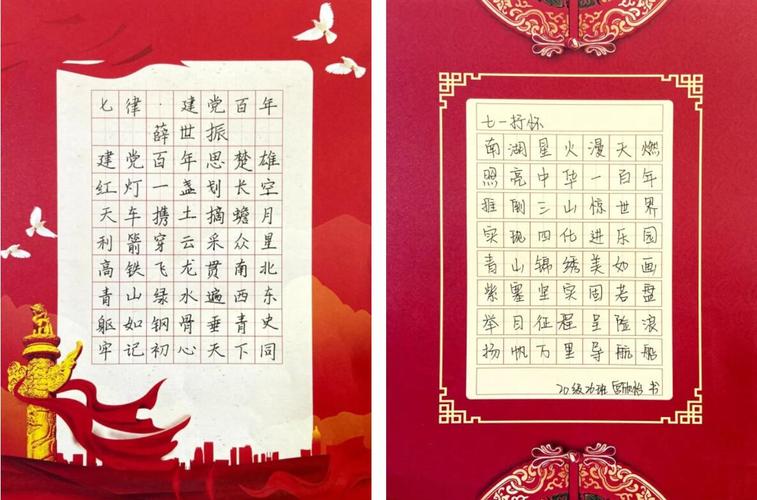 七律·建党百年
薛世振
建党百年思楚雄
红灯一盏划长空
天车携土摘蟾月
利箭穿云采众星
高铁飞龙贯南北
青山绿水遍西东
躯如钢骨垂青史
牢记初心天下同
七一抒怀
南湖星火漫天燃
照亮中华一百年
推倒三山惊世界
实现四化进乐园
青山锦绣美如画
紫塞坚实固若盘
举目征程呈险浪
扬帆万里导航船
20级26班 书